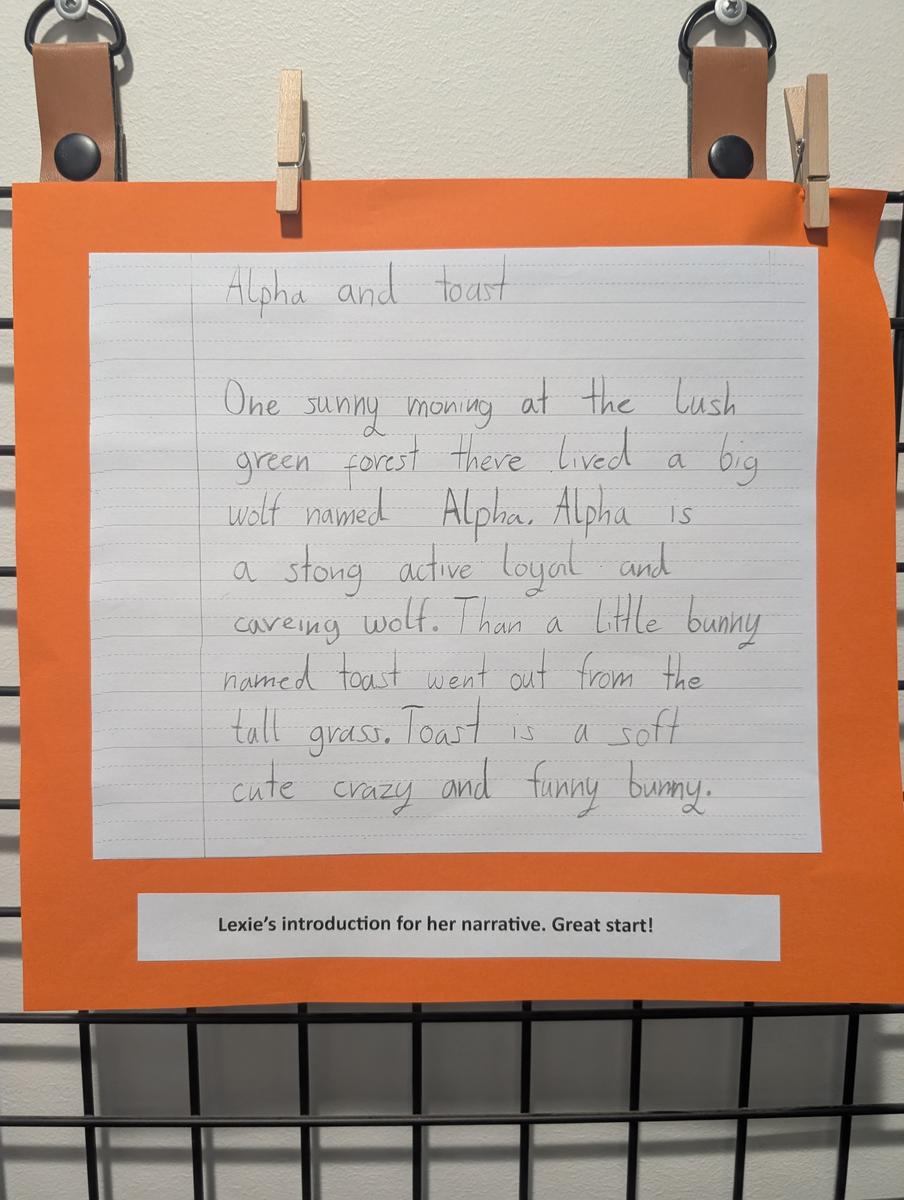 Alpha and toast
One sunny moning at the lush
green forest there lived a big
wolf named Alpha. Alpha is
a stong active loyal and
careing wolf. Than a little bunny
named toast went out from the
tall grass. Toast is a soft
cute crazy and funny bunny.
Lexie's introduction for her narrative. Great start!